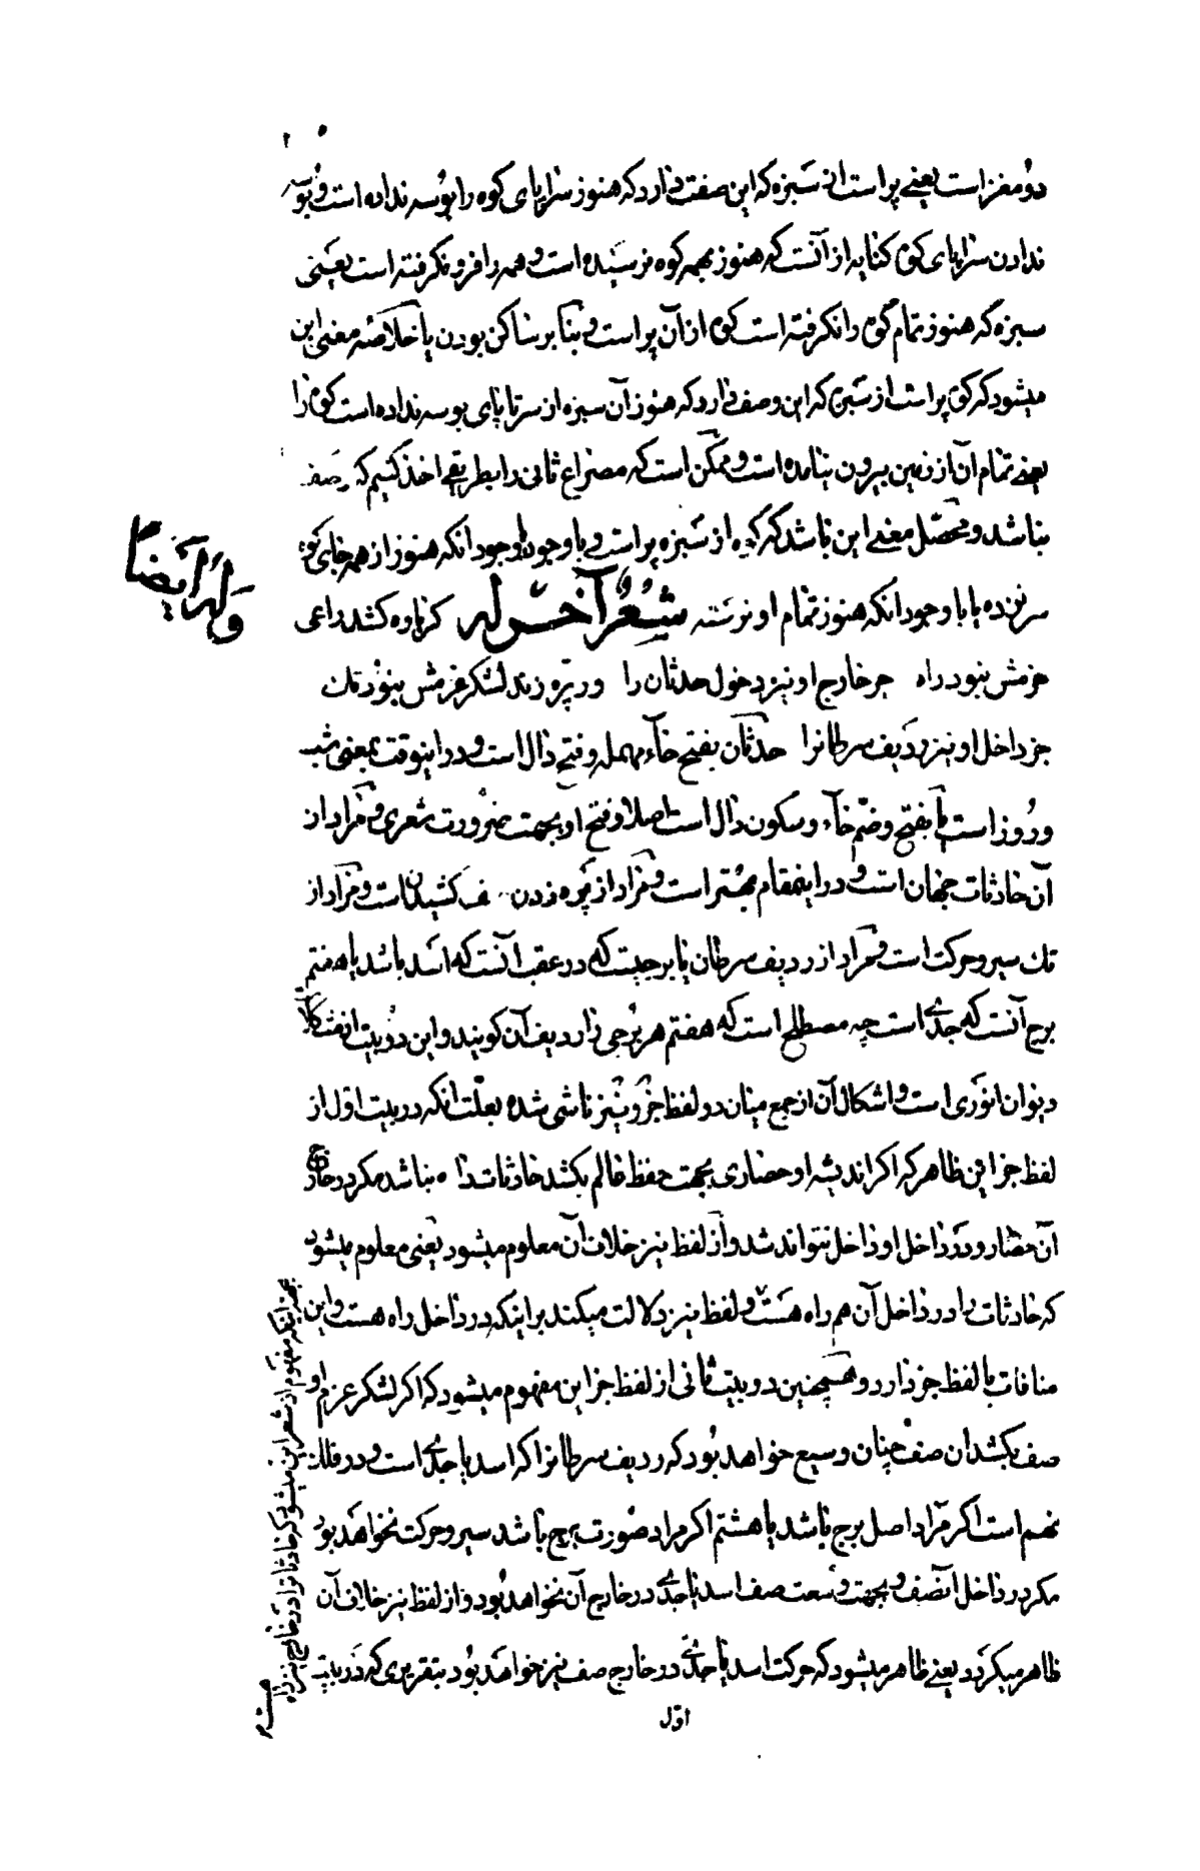 دو مغز است یعنی پر است از سبزه که این صفت دارد که هنوز سراپای کوه را بوسه نداده است و بوسه
ندادن سراپای کوه کنایه از آنست که هنوز بهمه کوه نرسیده است و همه را فرو نگرفته است یعنی
سبزه که هنوز تمام کوه را نگرفته است کوه از آن پر است و بنا بر ساکن بودن یا خلاصه معنی این
میشود که کوه پر است از سبزه که این وصف دارد که هنوز آن سبزه از سر تا پای بوسه نداده است کوه را
یعنی تمام آن از زمین بیرون نیامده است و ممکن است که مصراع ثانی را بطریقی اخذ کنیم که صفـ
نباشد و محصل معنی این باشد که که از سبزه پر است و با وجود او جود انکه هنوز از همه جای کوه
سر نزده یا با وجود انکه هنوز تمام او نرسته شعر آخر له کر باره کشد راعی
حزمش نبود راه جز خارج او نیز دخول حدثان را ور پره زند لشکر عزمش نبود تک
جز داخل او نیز ردیف سرطانرا حدثان بفتح حاء مهمله و فتح دال است و در اینوقت بمعنی شب
و روز است یا بفتح و ضم حاء و سکون دال است اصلا و فتح او بجهت ضرورت شعری و مراد از
آن حادثات جهان است و در اینمقام بهتر است و مراد از پره زدن صف کشیدن است و مراد از
تک سیر و حرکت است و مراد از ردیف سرطان یا برجیست که در عقب آنست که اسد باشد یا هفتم
برج آنست که جدی است چه مصطلح است که هفتم هر برجی را ردیف آن کویند و این دو بیت از مشکلات
دیوان انوری است و اشکال آن از جمع میان دو لفظ جز و نیز ناشی شده بعلت انکه در بیت اول از
لفظ جز این ظاهر که اکر اندیشه او حصاری بجهت حفظ عالم بکشد حادثات را ه نباشد مکر در خارج
آن حصار و در داخل او داخل نتواند شد و از لفظ نیز خلاف آن معلوم میشود یعنی معلوم میشود
که حادثات را در داخل آن هم راه هست و لفظ نیز دلالت میکند بر اینکه در داخل راه هست و این
منافات با لفظ جز دارد و همچنین در بیت ثانی از لفظ جز این مفهوم میشود که اکر لشکر عزم او
صف بکشد ان صف چنان وسیع خواهد بود که ردیف سرطانرا که اسد یا جدی است و در فلک
نهم است اکر مراد اصل برج باشد یا هشتم اکر مراد صورت برج باشد سیر و حرکت نخواهد بود
مکر در داخل آنصف و بجهت وسعت صف اسد یا جدی در خارج آن نخواهد بود و از لفظ نیز خلاف آن
ظاهر میکردد یعنی ظاهر میشود که حرکت اسد یا جدی در خارج صف نیز خواهد بود بتقریری که در بیت
اول
وله ایضا
بجز انکه مفهوم از شعر این میشود که حادثاترا در خارج نیز راه
هست